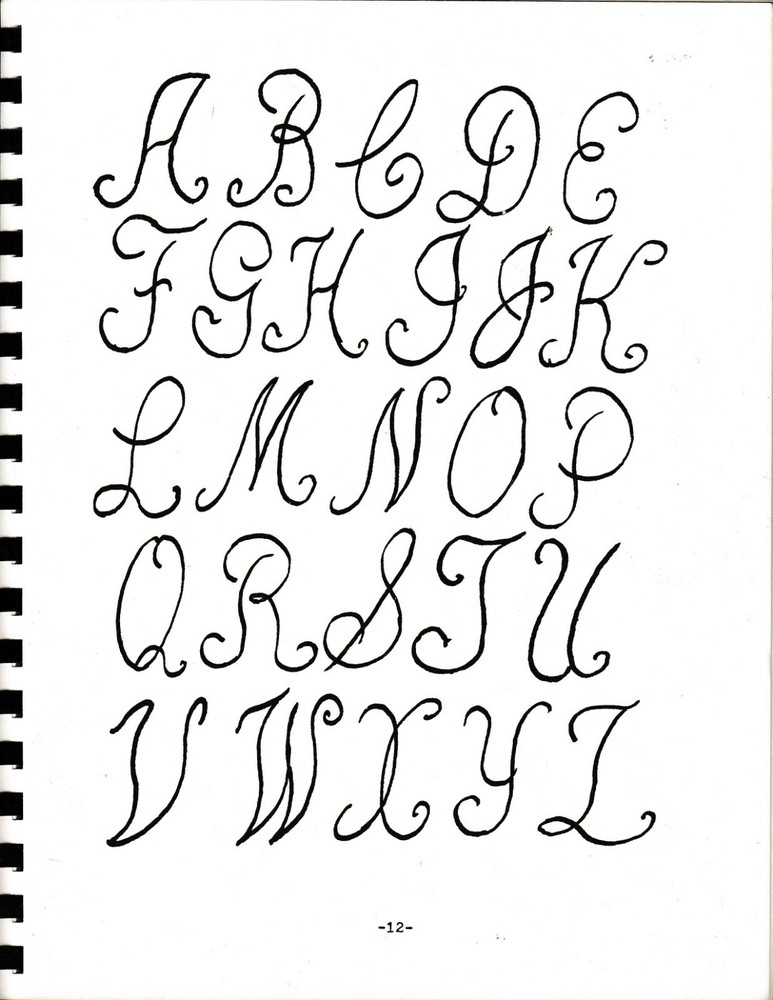 A B C D E
F G H I J K
L M N O P
Q R S T U
V W X Y Z
-12-